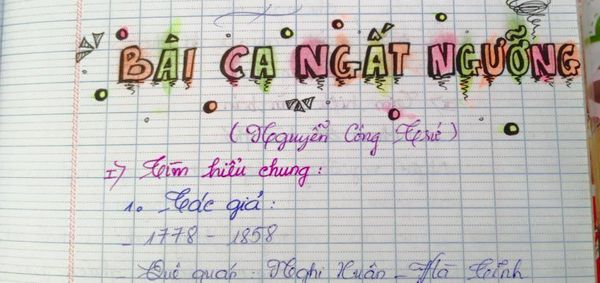 BÀI CA NGẤT NGƯỞNG
( Nguyễn Công Trứ )
I) Tìm hiểu chung :
1. Tác giả :
- 1778 - 1858
- Quê quán : Nghi Xuân - Hà Tĩnh